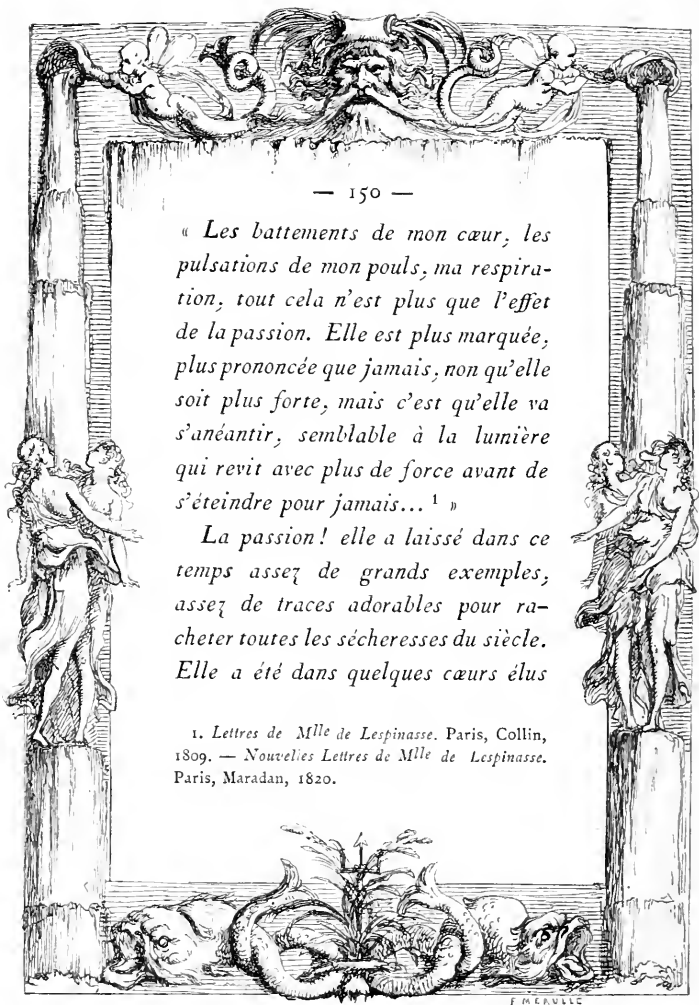 — 150 —
« Les battements de mon cœur, les
pulsations de mon pouls, ma respira-
tion, tout cela n'est plus que l'effet
de la passion. Elle est plus marquée,
plus prononcée que jamais, non qu'elle
soit plus forte, mais c'est qu'elle va
s'anéantir, semblable à la lumière
qui revit avec plus de force avant de
s'éteindre pour jamais... ¹ »
La passion! elle a laissé dans ce
temps assez de grands exemples,
assez de traces adorables pour ra-
cheter toutes les sécheresses du siècle.
Elle a été dans quelques cœurs élus
1. Lettres de Mlle de Lespinasse. Paris, Collin,
1809. — Nouvelles Lettres de Mlle de Lespinasse.
Paris, Maradan, 1820.